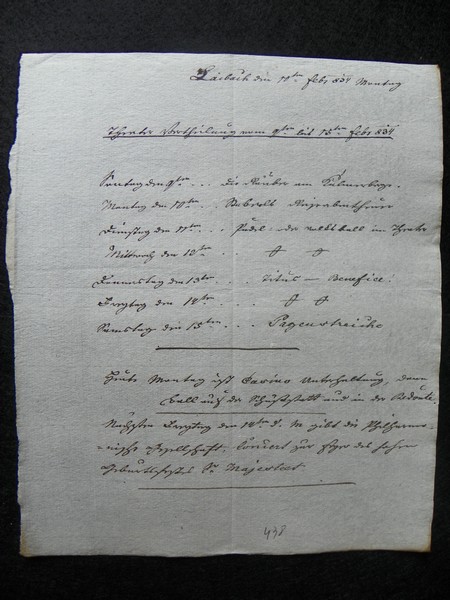 Laibach den 10ten febr 834 Montag
Theater Vertheilung vom 9ten bis 15ten febr 834
Sontag den 9ten ... Die Räuber am
Montag den 10ten ...
Dienstag den 11ten ... im Theater
Mittwoch den 12ten ...
Donnerstag den 13ten ... Titus – Benefice.
Freytag den 14ten ...
Samstag den 15ten ... Pagenstreiche
Heute Montag ist Casino Unterhaltung, dann
ball auf der Schießstatt und in der Redoute.
Nächsten Freytag den 14ten d. M. gibt die Philharmo-
nische Gesellschaft, Concert zur Feyer des hohen
Geburtsfestes Sr Majestaet
438